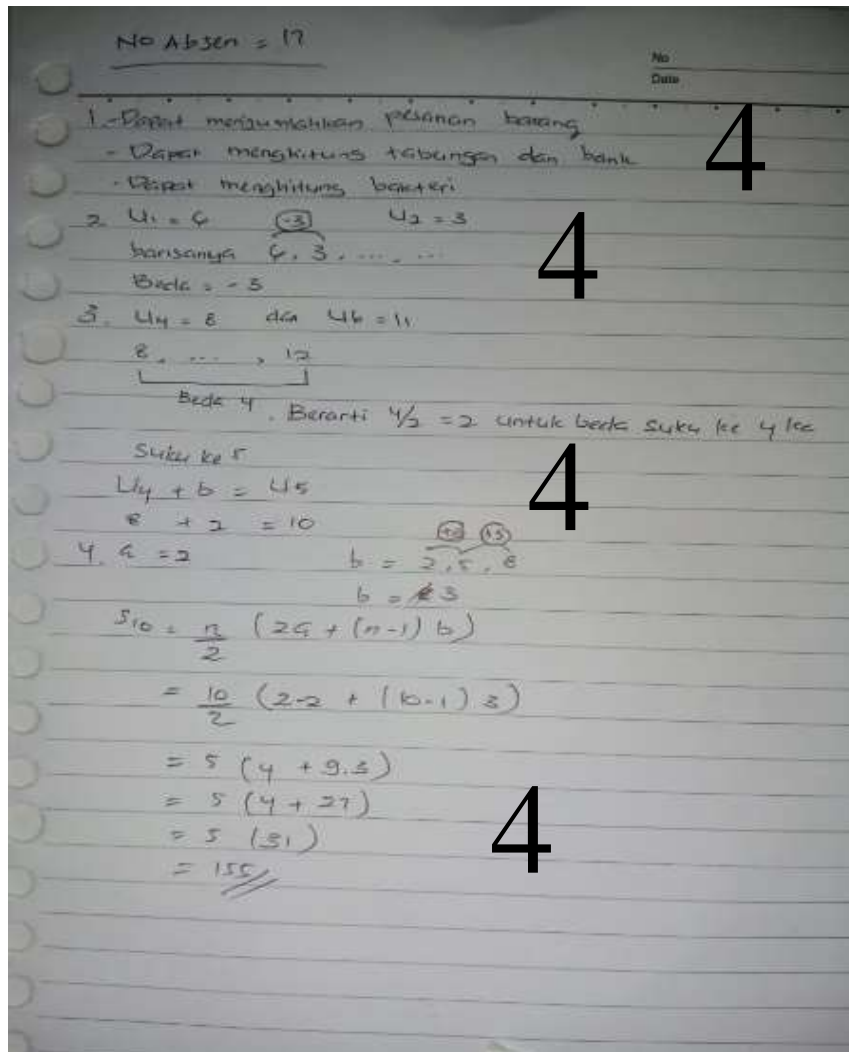 No Absen = 17
No
Date
1. - Dapat menjumlahkan pesanan barang
- Dapat menghitung tabungan dan bank
- Dapat menghitung bakteri
4
2. U1 = 6 (-3) U2 = 3
barisanya 6, 3, ..., ...
Beda = -3
4
3. U4 = 8 dan U6 = 11
8, ..., 12
Beda 4. Berarti 4/2 = 2 untuk beda suku ke 4 ke
Suku ke 5
U4 + b = U5
8 + 2 = 10
4
4. a = 2 b = 2, 5, 8
+3 +3
b = 3
S10 = n/2 (2a + (n-1) b)
= 10/2 (2.2 + (10-1) 3)
= 5 (4 + 9.3)
= 5 (4 + 27)
= 5 (31)
= 155
4